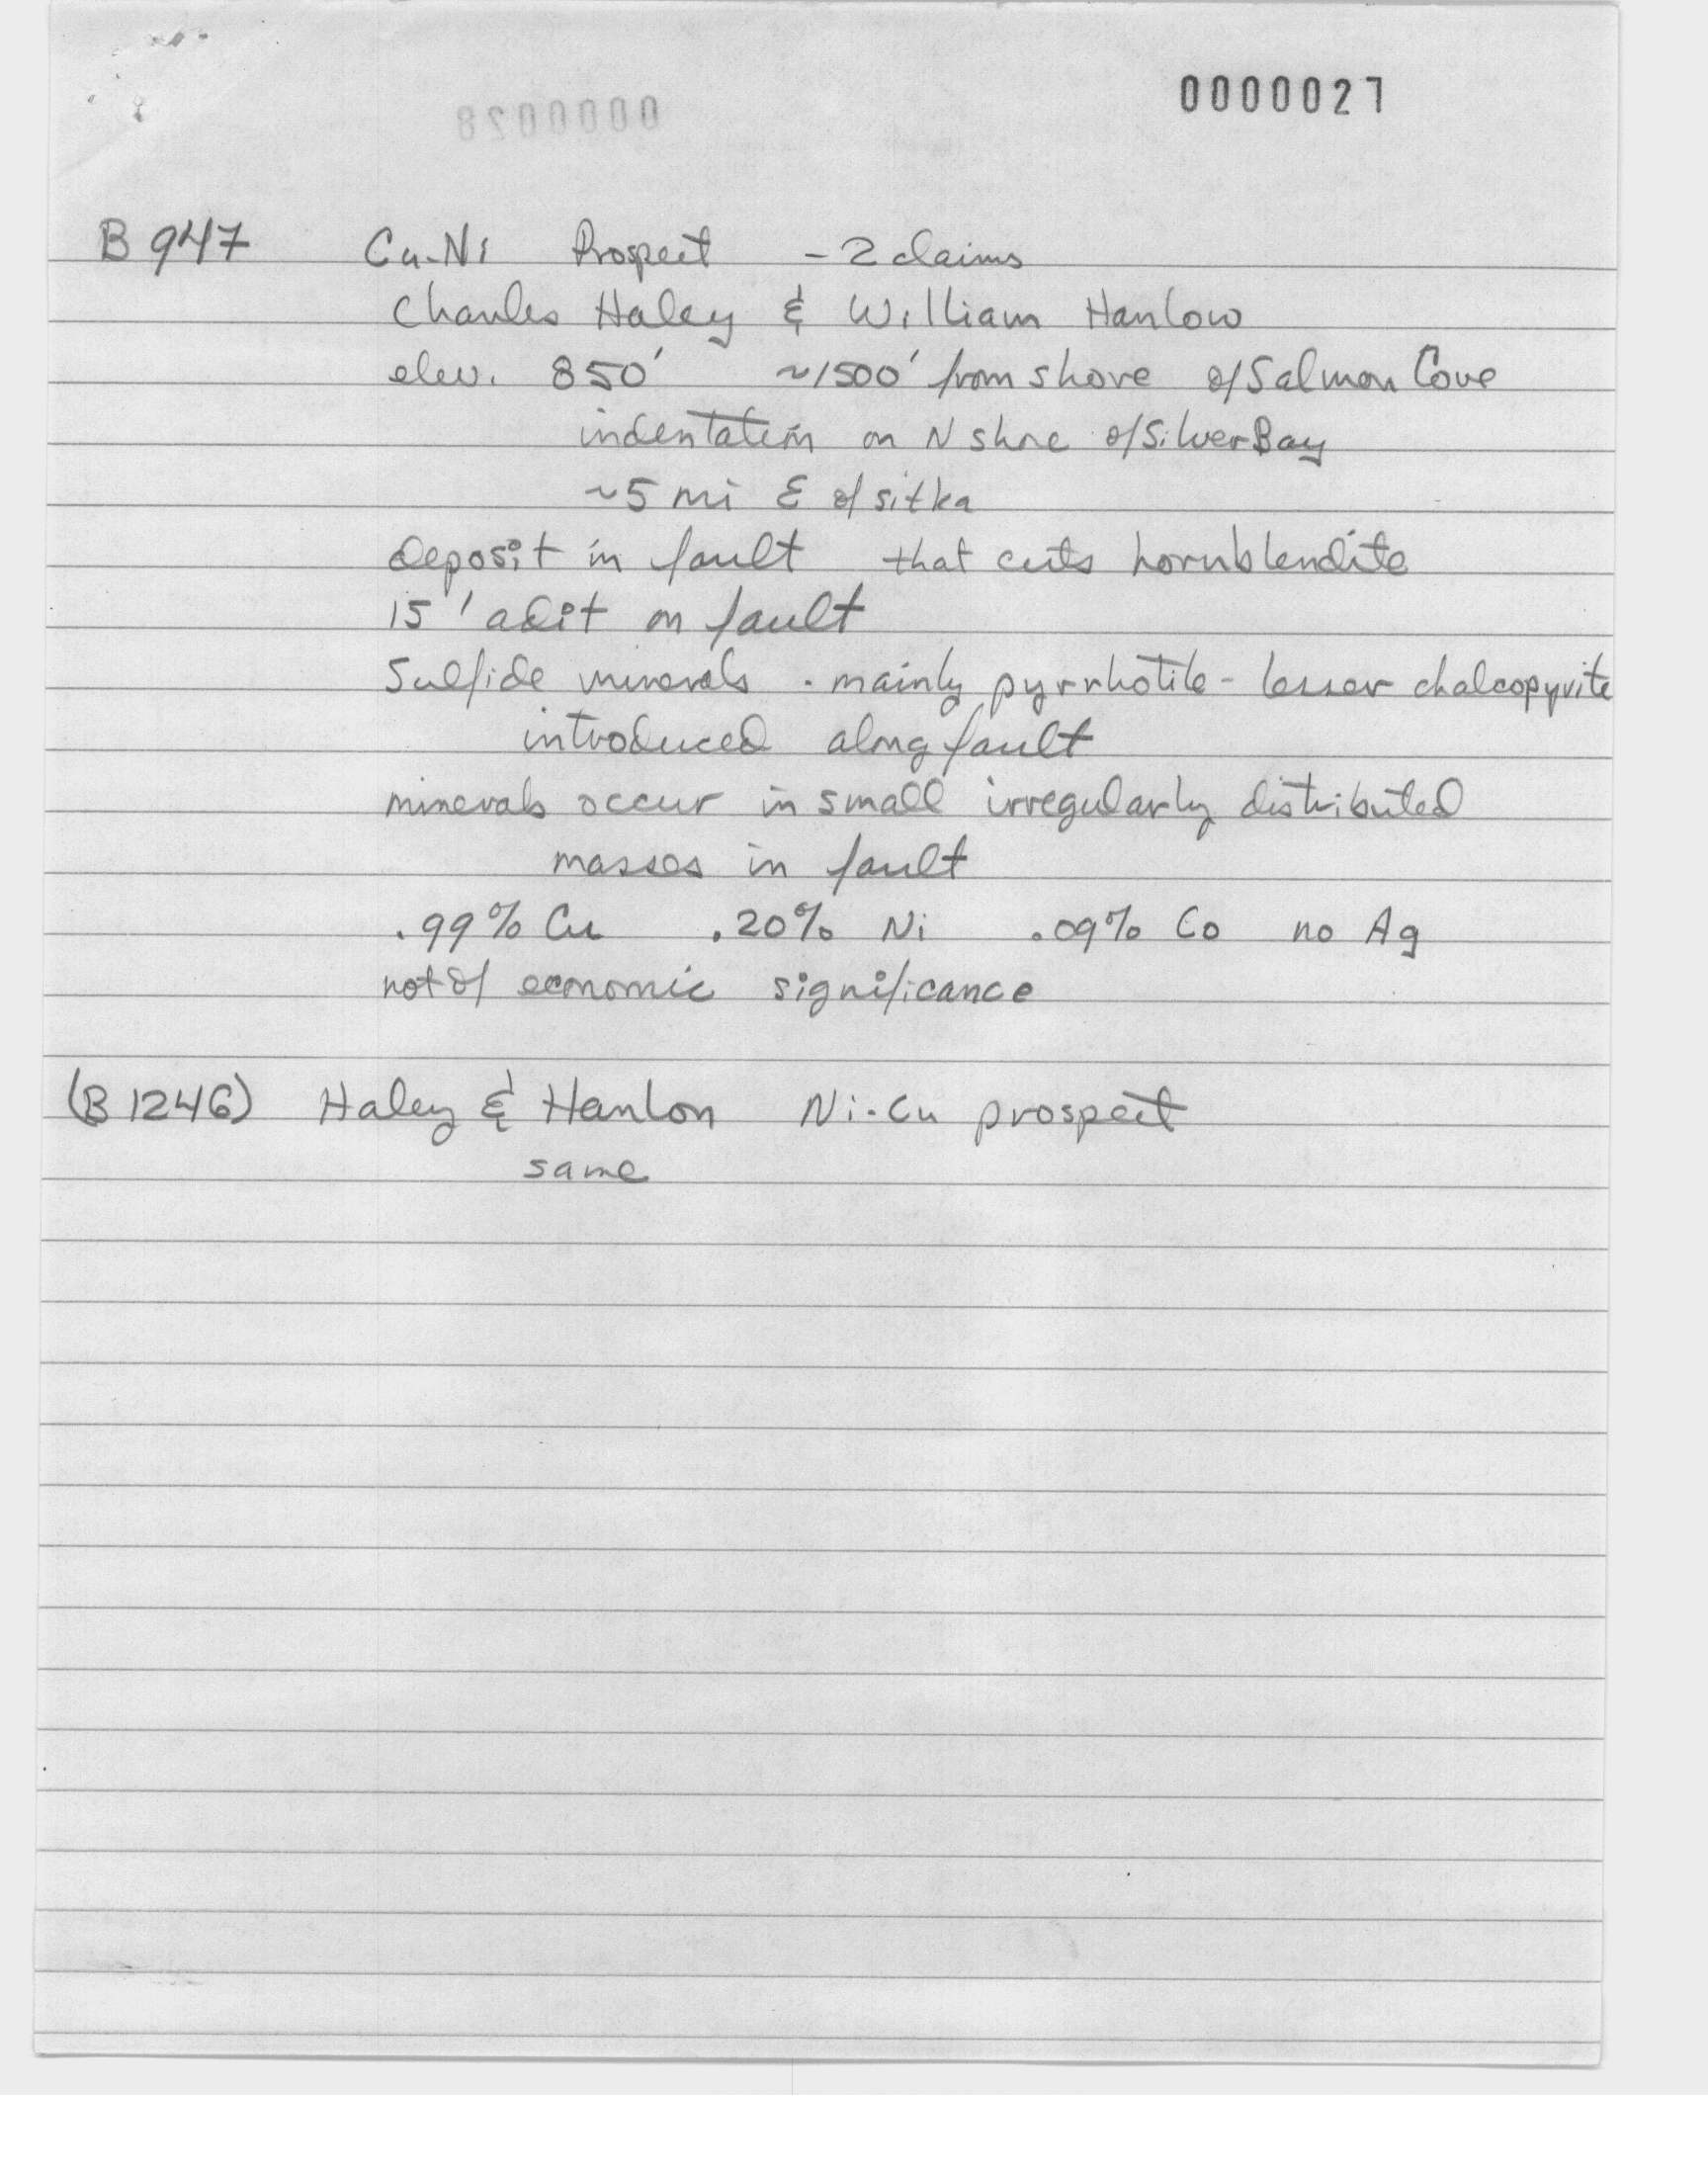 0000027
0000028
B 947 Cu-Ni Prospect - 2 claims
Charles Haley & William Hanlow
elev. 850' ~1500' from shore of Salmon Cove
indentation on N shore of Silver Bay
~5 mi E of sitka
deposit in fault that cuts hornblendite
15' adit on fault
Sulfide minerals - mainly pyrrhotite - lesser chalcopyrite
introduced along fault
minerals occur in small irregularly distributed
masses in fault
.99% Cu .20% Ni .09% Co no Ag
not of economic significance
(B 1246) Haley & Hanlon Ni-Cu prospect
same